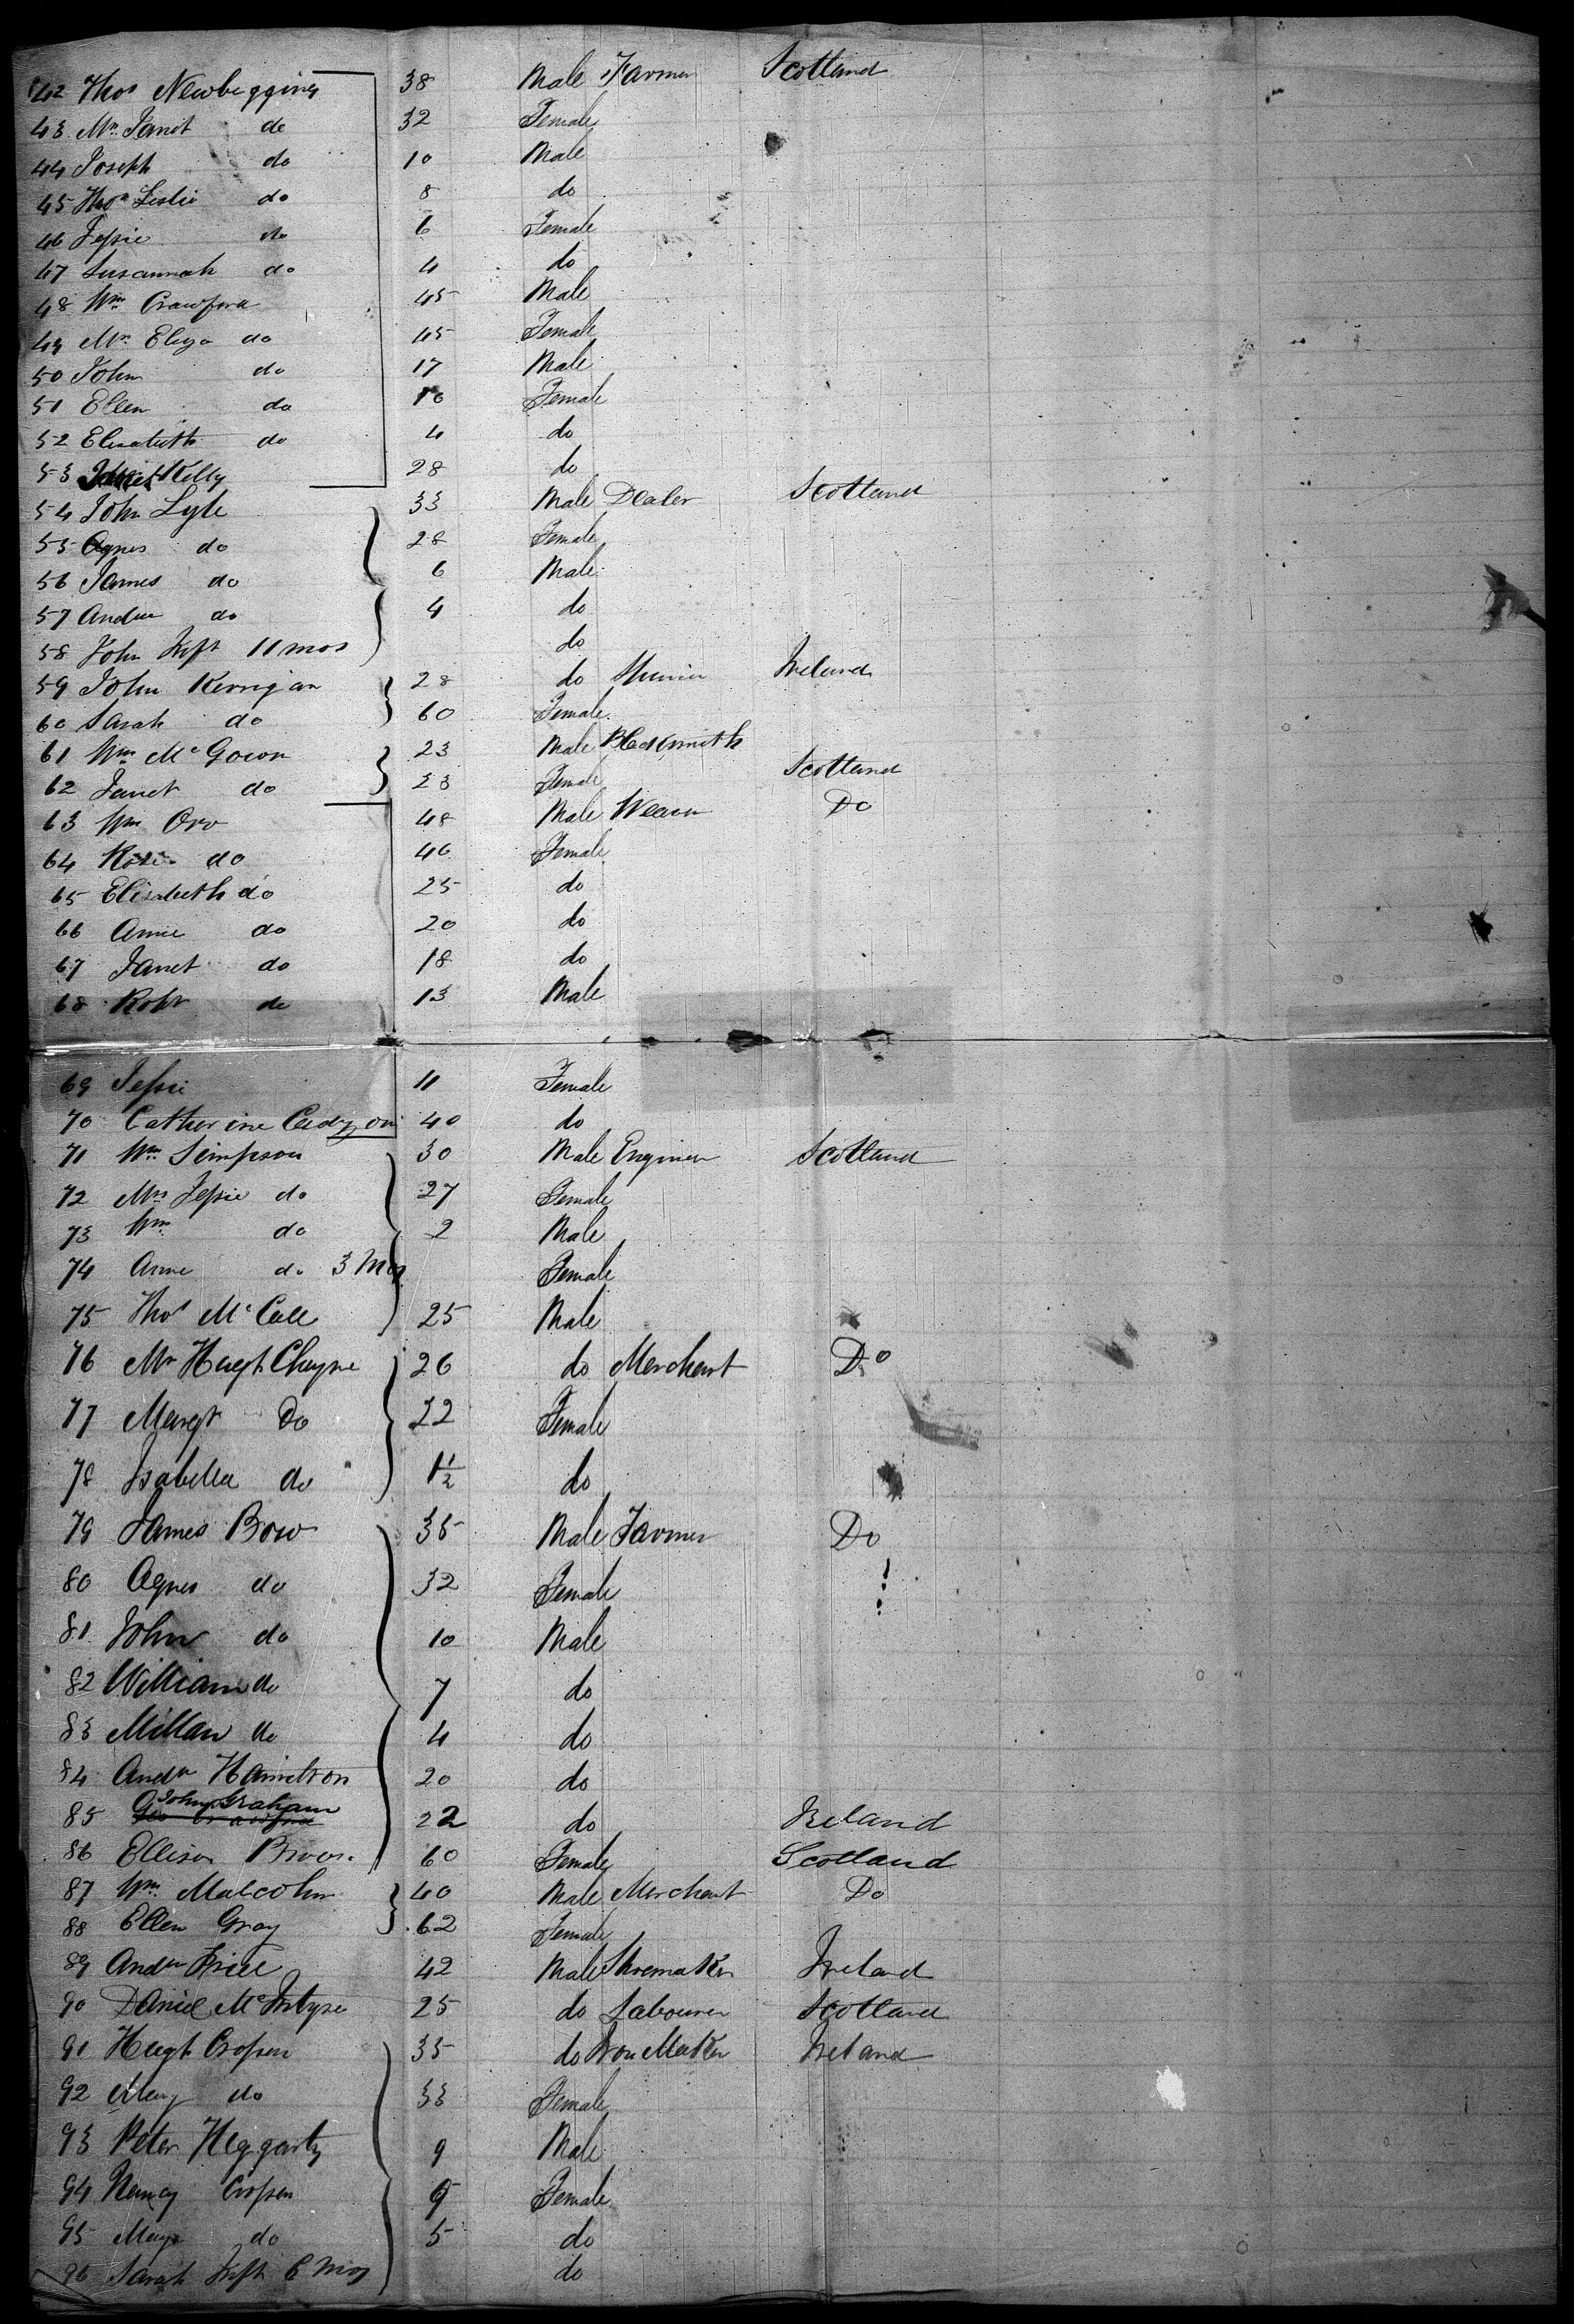 42 Thos Newbigging 38 Male Farmer Scotland
43 Mrs Janet do 32 Female
44 Joseph do 10 Male
45 Thos Leslie do 8 do
46 Jessie do 6 Female
47 Susannah do 4 do
48 Wm Crawford 45 Male
49 Mrs Eliza do 45 Female
50 John do 17 Male
51 Ellen do 10 Female
52 Elisabeth do 4 do
53 Kelly 28 do
54 John Lyle 33 Male Dealer Scotland
55 Agnes do 28 Female
56 James do 6 Male
57 Andw do 4 do
58 John Inft 11 mos do
59 John Kerrigan 28 do Ireland
60 Sarah do 60 Female
61 Wm McGowon 23 Male Blacksmith
62 Janet do 23 Female Scotland
63 Wm Orr 48 Male Weaver Do
64 Rose do 46 Female
65 Elisabeth do 25 do
66 Annie do 20 do
67 Janet do 18 do
68 Robt do 13 Male
69 Jessie 11 Female
70 Catherine 40 do
71 Wm Simpson 30 Male Engineer Scotland
72 Mrs Jessie do 27 Female
73 Wm do 2 Male
74 Anne do 3 Mos Female
75 Thos McCall 25 Male
76 Mr Hugh Cheyne 26 do Merchant Do
77 Margt Do 22 Female
78 Isabella do 1 1/2 do
79 James Bow 35 Male Farmer Do
80 Agnes do 32 Female
81 John do 10 Male
82 William do 7 do
83 Millan do 4 do
84 Andw Hamilton 20 do
85 John Graham 22 do Ireland
86 Ellison Brown 60 Female Scotland
87 Wm Malcolm 40 Male Merchant Do
88 Ellen Gray 62 Female
89 Andw 42 Male Shoemaker Ireland
90 Daniel McIntyre 25 do Labourer Scotland
91 Hugh Crossen 35 do Iron Maker Ireland
92 Mary do 33 Female
93 Peter Heggarty 9 Male
94 Nancy Crossen 9 Female
95 Mary do 5 do
96 Sarah Inft 6 Mos do